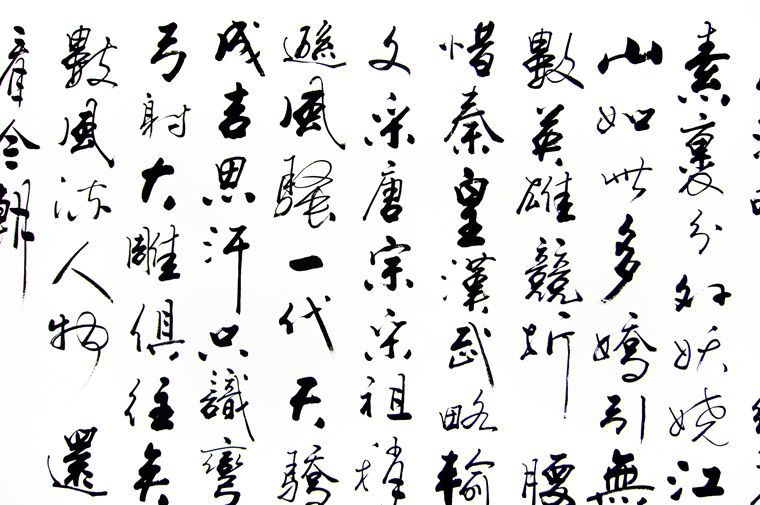 素裹分外妖嬈江
山如此多嬌引無
數英雄競折腰
惜秦皇漢武略輸
文采唐宗宋祖稍
遜風騷一代天驕
成吉思汗只識彎
弓射大雕俱往矣
數風流人物還
看今朝